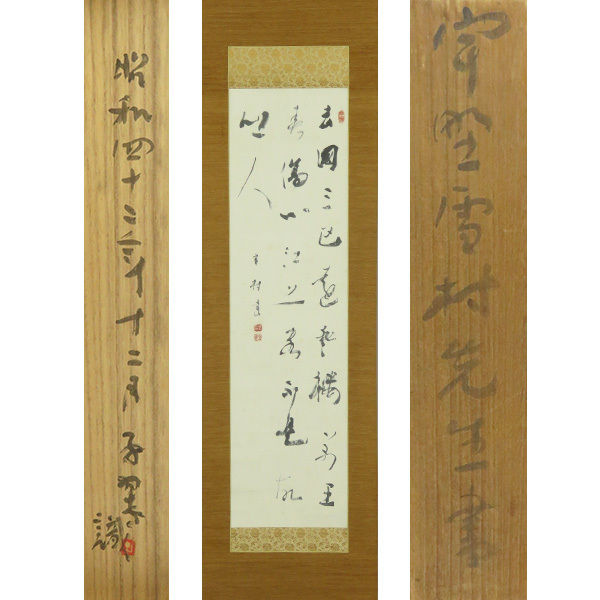 昭和四十二年十二月 識
去國三巴遠登樓万里
春傷心江上客不是故
鄉人
雪村書
宇野雪村先生書